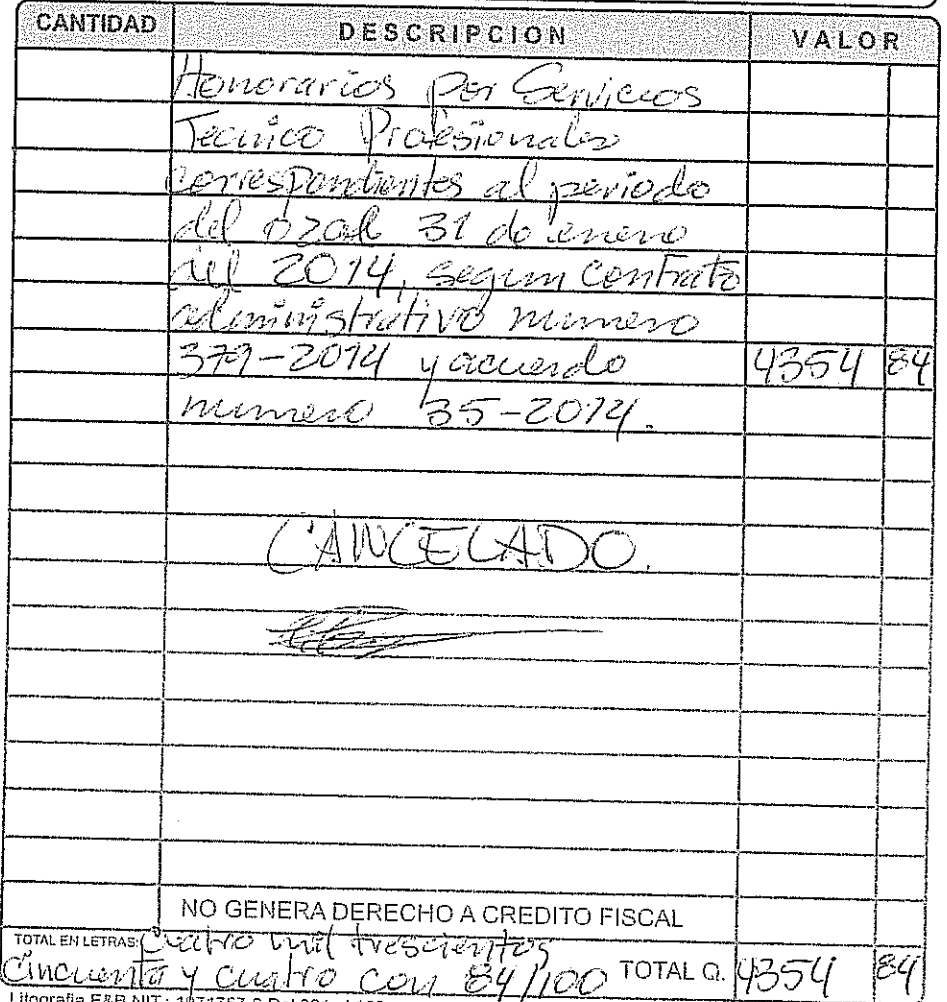 CANTIDAD DESCRIPCION VALOR
Honorarios por Servicios
Tecnico Profesionales
correspondientes al periodo
del 02 al 31 de enero
del 2014, segun contrato
administrativo numero
379-2014 y acuerdo 4354 84
numero 35-2014.
CANCELADO.
NO GENERA DERECHO A CREDITO FISCAL
TOTAL EN LETRAS: Cuatro mil trescientos
Cincuenta y cuatro con 84/100 TOTAL Q. 4354 84
Litografia E&R NIT.: